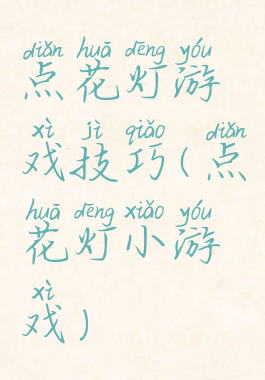 diǎn huā dēng yóu
点花灯游
xì jì qiǎo diǎn
戏技巧(点
huā dēng xiǎo yóu
花灯小游
xì
戏)